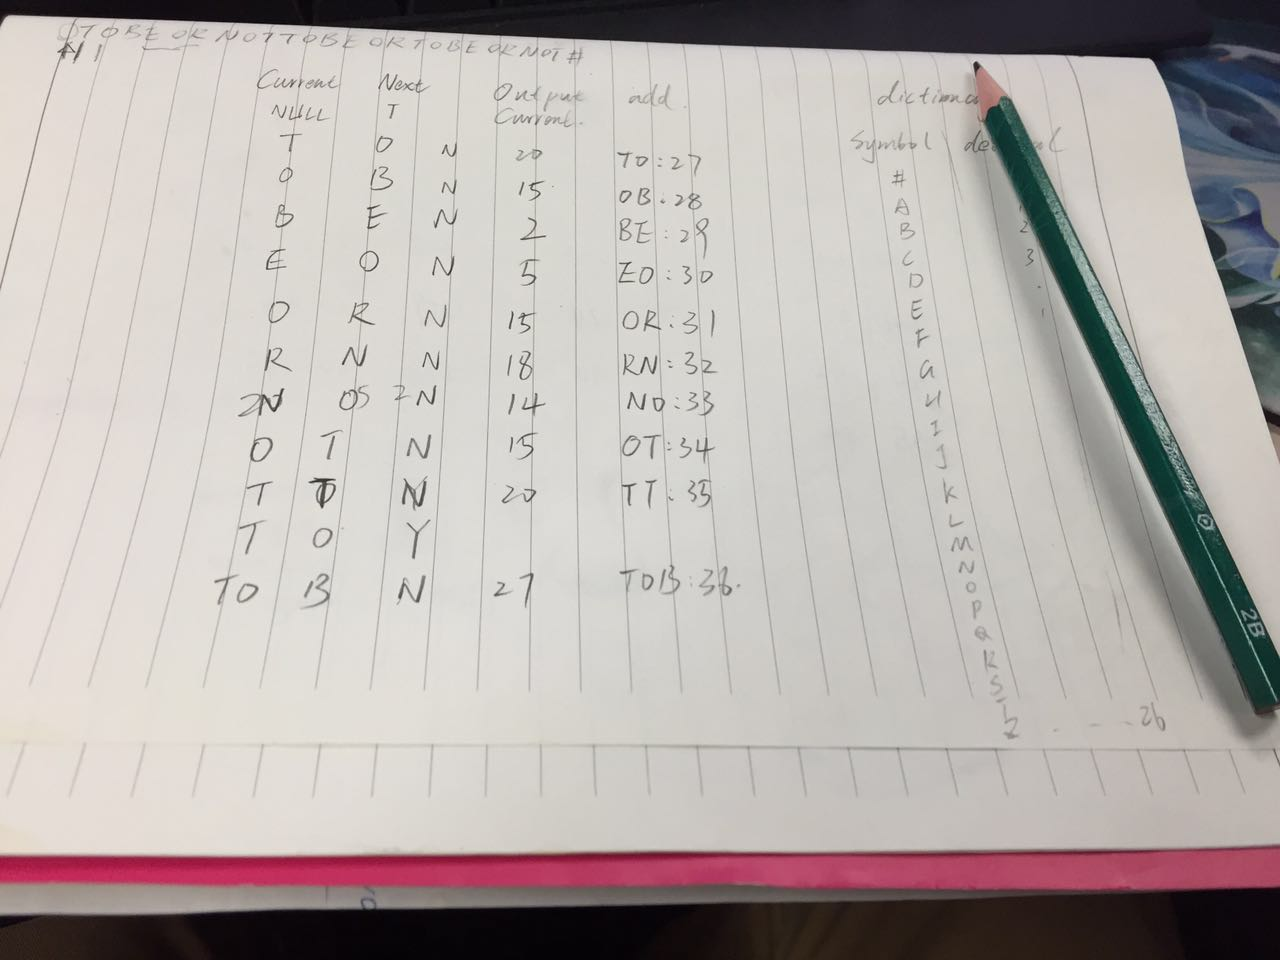 TOBEORNOTTOBEORTOBEORNOT#
Current Next Output add. dictiona
NULL T Current.
Symbol de al
T O N 20 TO:27
O B N 15 OB:28
B E N 2 BE:29
E O N 5 EO:30
O R N 15 OR:31
R N N 18 RN:32
N O N 14 NO:33
O T N 15 OT:34
T T N 20 TT:35
T O Y
TO B N 27 TOB:36.
#
A
B 2
C 3
D
E
F
G
H
I
J
K
L
M
N
O
P
Q
R
S
Z 26
2B